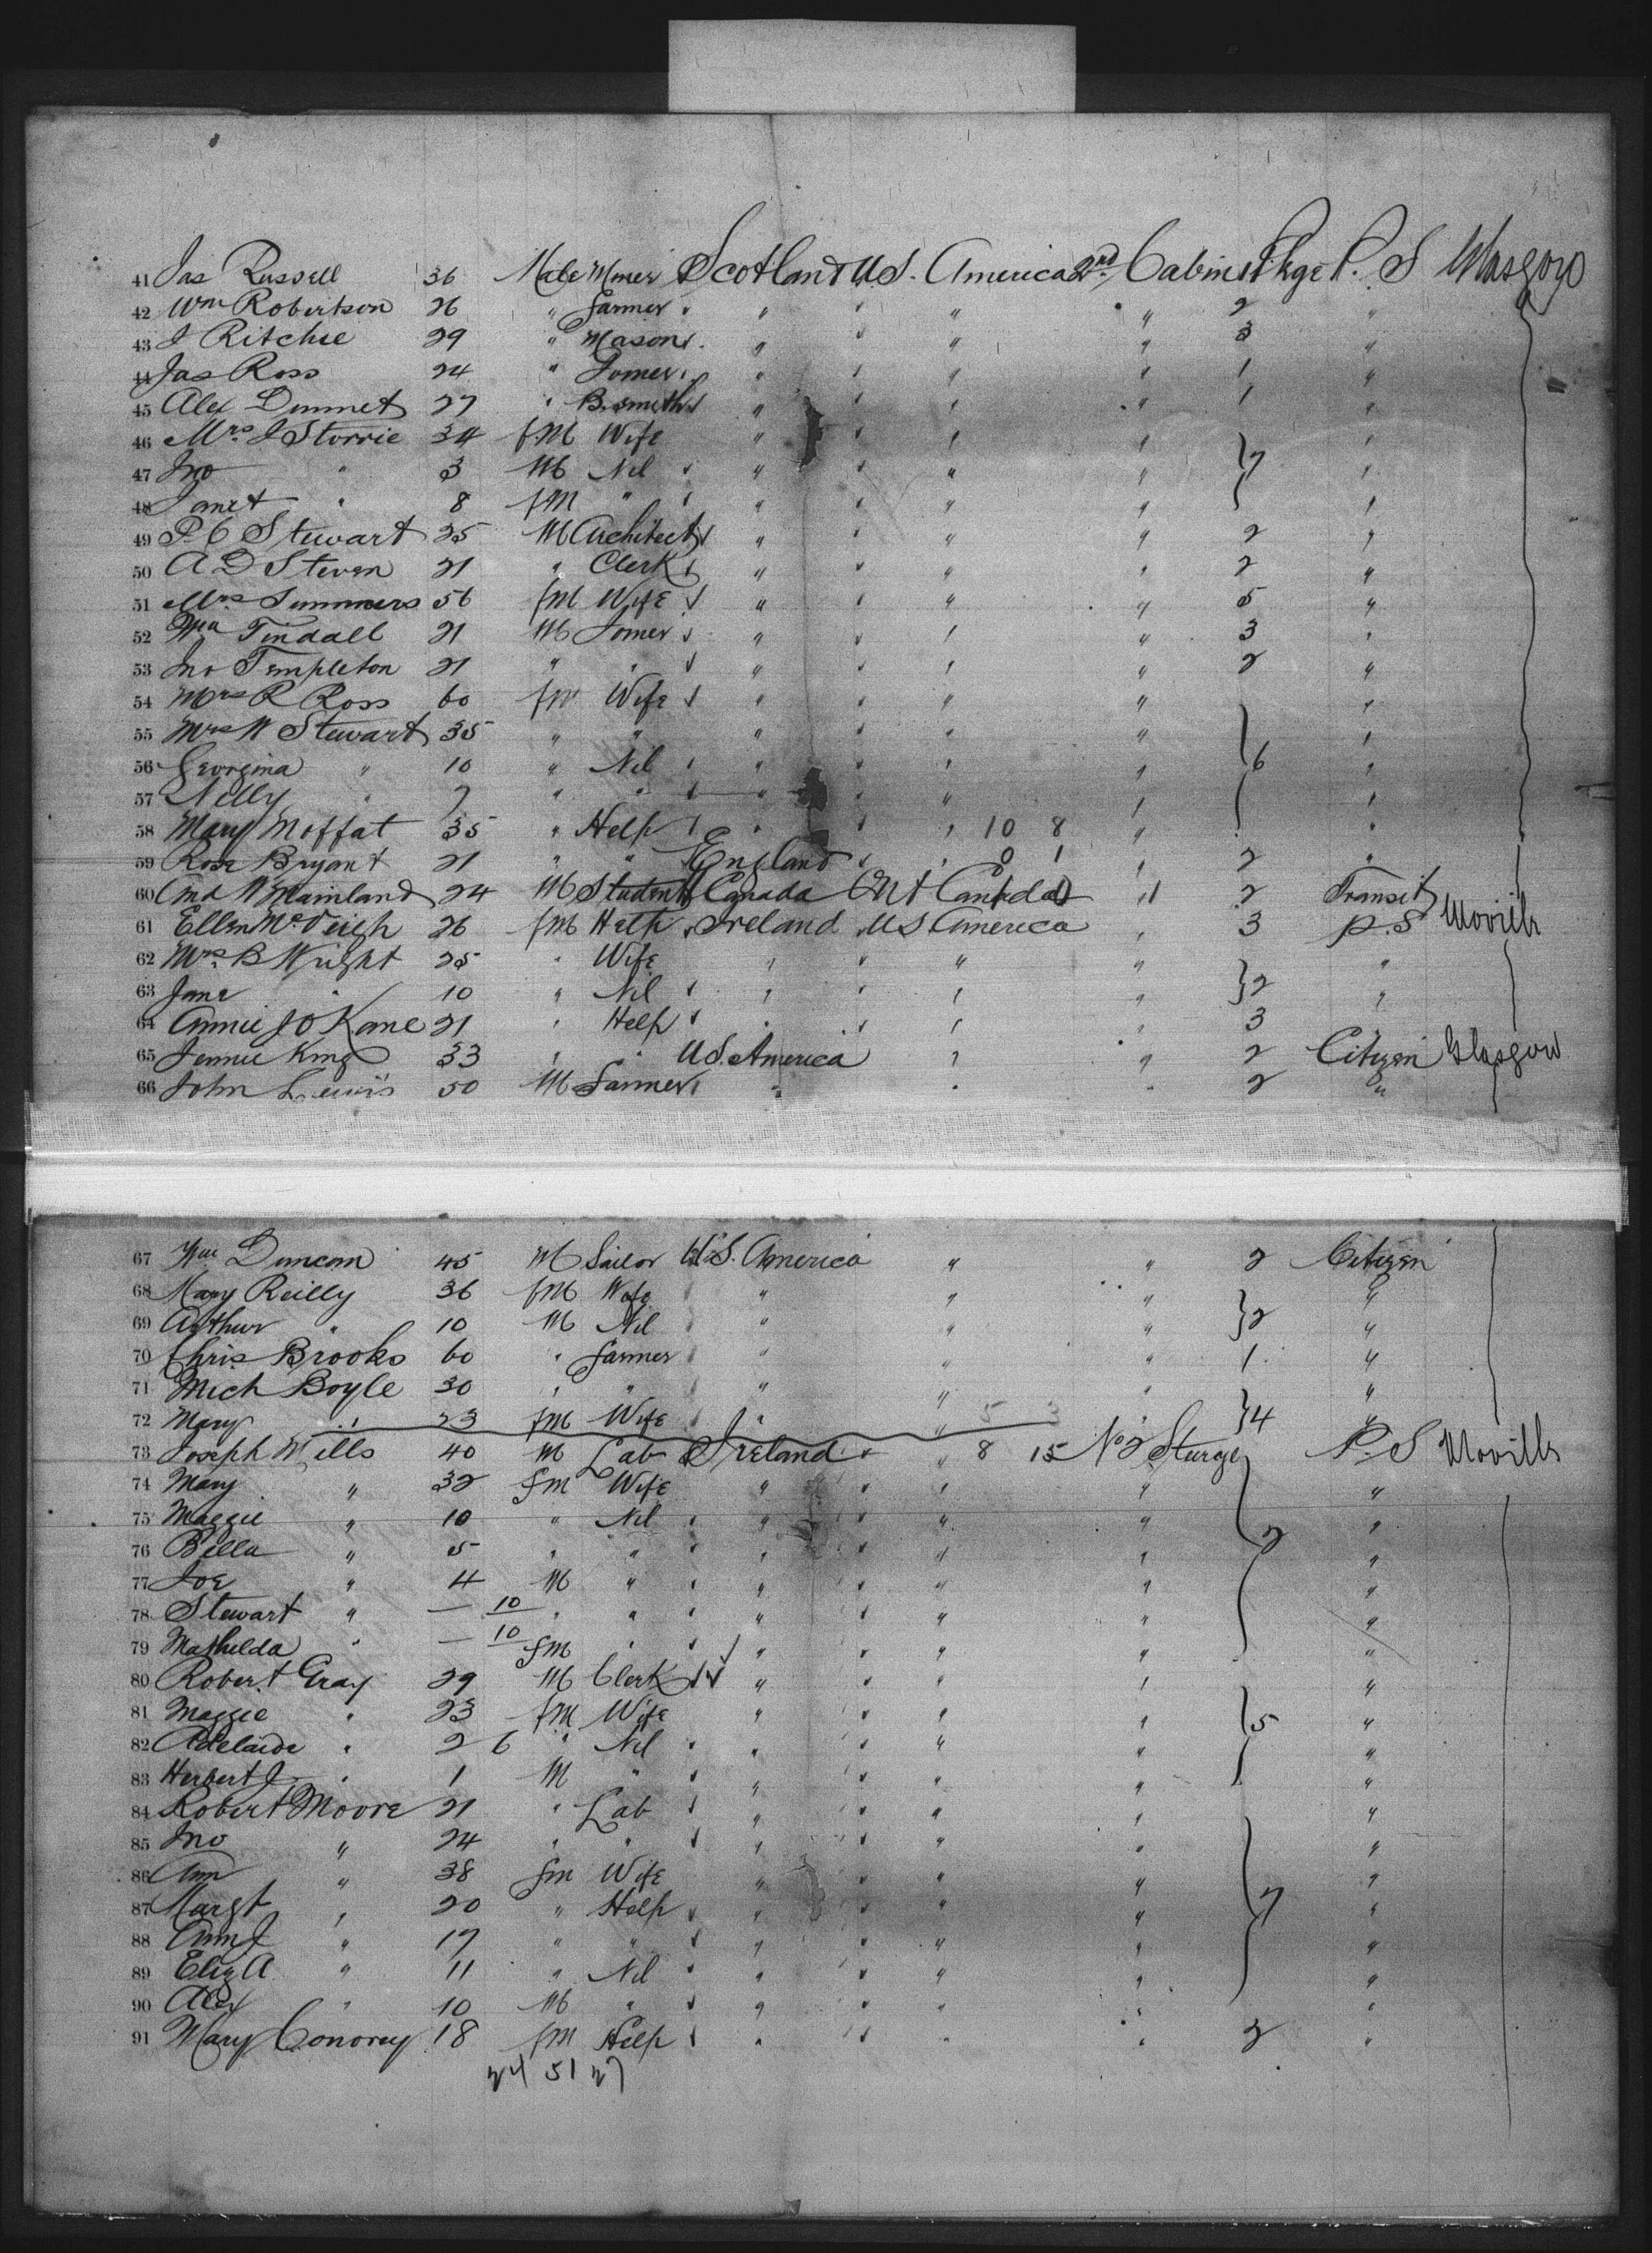 41 Jas Russell 36 Male Miner Scotland U.S. America 2nd Cabin 1 Pkge P. S Glasgow
42 Wm Robertson 26 " Farmer " " " 2 "
43 J Ritchie 29 " Mason " " " 3 "
44 Jas Ross 24 " Joiner " " " 1 "
45 Alex Dunnet 27 " B. smith " " " 1 "
46 Mrs J Storrie 34 fM Wife " " " "
47 Jno " 3 M Nil " " " } 7 "
48 Janet " 8 fM " " " " "
49 P C Stewart 25 M Architect " " " 2 "
50 A D Steven 21 " Clerk " " " 2 "
51 Mrs Summers 56 fM Wife " " " 5 "
52 Wm Tindall 21 M Joiner " " " 3 "
53 Jno Templeton 21 " " " " " 2 "
54 Mrs R Ross 60 fM Wife " " " "
55 Mrs W Stewart 35 " " " " " "
56 Georgina " 10 " Nil " " " } 6 "
57 Nelly " 7 " " " " " "
58 Mary Moffat 35 " Help " " 10 8 " "
59 Rose Bryant 21 " " England " 0 1 " 2 "
60 And W Mainland 24 M Student Canada Ont Canada " 2 Transit
61 Ellen McVeigh 26 fM Help Ireland US America " 3 P.S Moville
62 Mrs B Wright 25 " Wife " " " "
63 Jane " 10 " Nil " " " } 2 "
64 Annie J O Kane 21 " Help " " " 3
65 Jennie King 33 " " U.S. America " " 2 Citizen Glasgow
66 John Lewis 50 M Farmer " " " 2 "
67 Wm Duncan 45 M Sailor U.S. America " " 2 Citizen
68 Mary Reilly 36 fM Wife " " " "
69 Arthur " 10 M Nil " " " } 2 "
70 Chris Brooks 60 " Farmer " " " 1 "
71 Mich Boyle 30 " " " " " "
72 Mary " 23 fM Wife " " 5 3 " } 4 "
73 Joseph Wills 40 M Lab Ireland " 8 15 No 2 Sturge P. S Moville
74 Mary " 32 fM Wife " " " "
75 Maggie " 10 " Nil " " " "
76 Bella " 5 " " " " " } 2 "
77 Joe " 4 M " " " " "
78 Stewart " — 10 " " " " " "
79 Mathilda " — 10 fM " " " " "
80 Robert Gray 29 M Clerk " " " "
81 Maggie " 23 fM Wife " " " } 5 "
82 Adelaide " 2 6 " Nil " " " "
83 Herbert J " 1 M " " " " "
84 Robert Moore 21 " Lab " " " "
85 Jno " 24 " " " " " "
86 Ann " 38 fm Wife " " " "
87 Margt " 20 " Help " " " } 7 "
88 Ann J " 17 " " " " " "
89 Eliz A " 11 " Nil " " " "
90 Alex " 10 M " " " " "
91 Mary Conorey 18 fM Help " " " 2 "
24 51 27